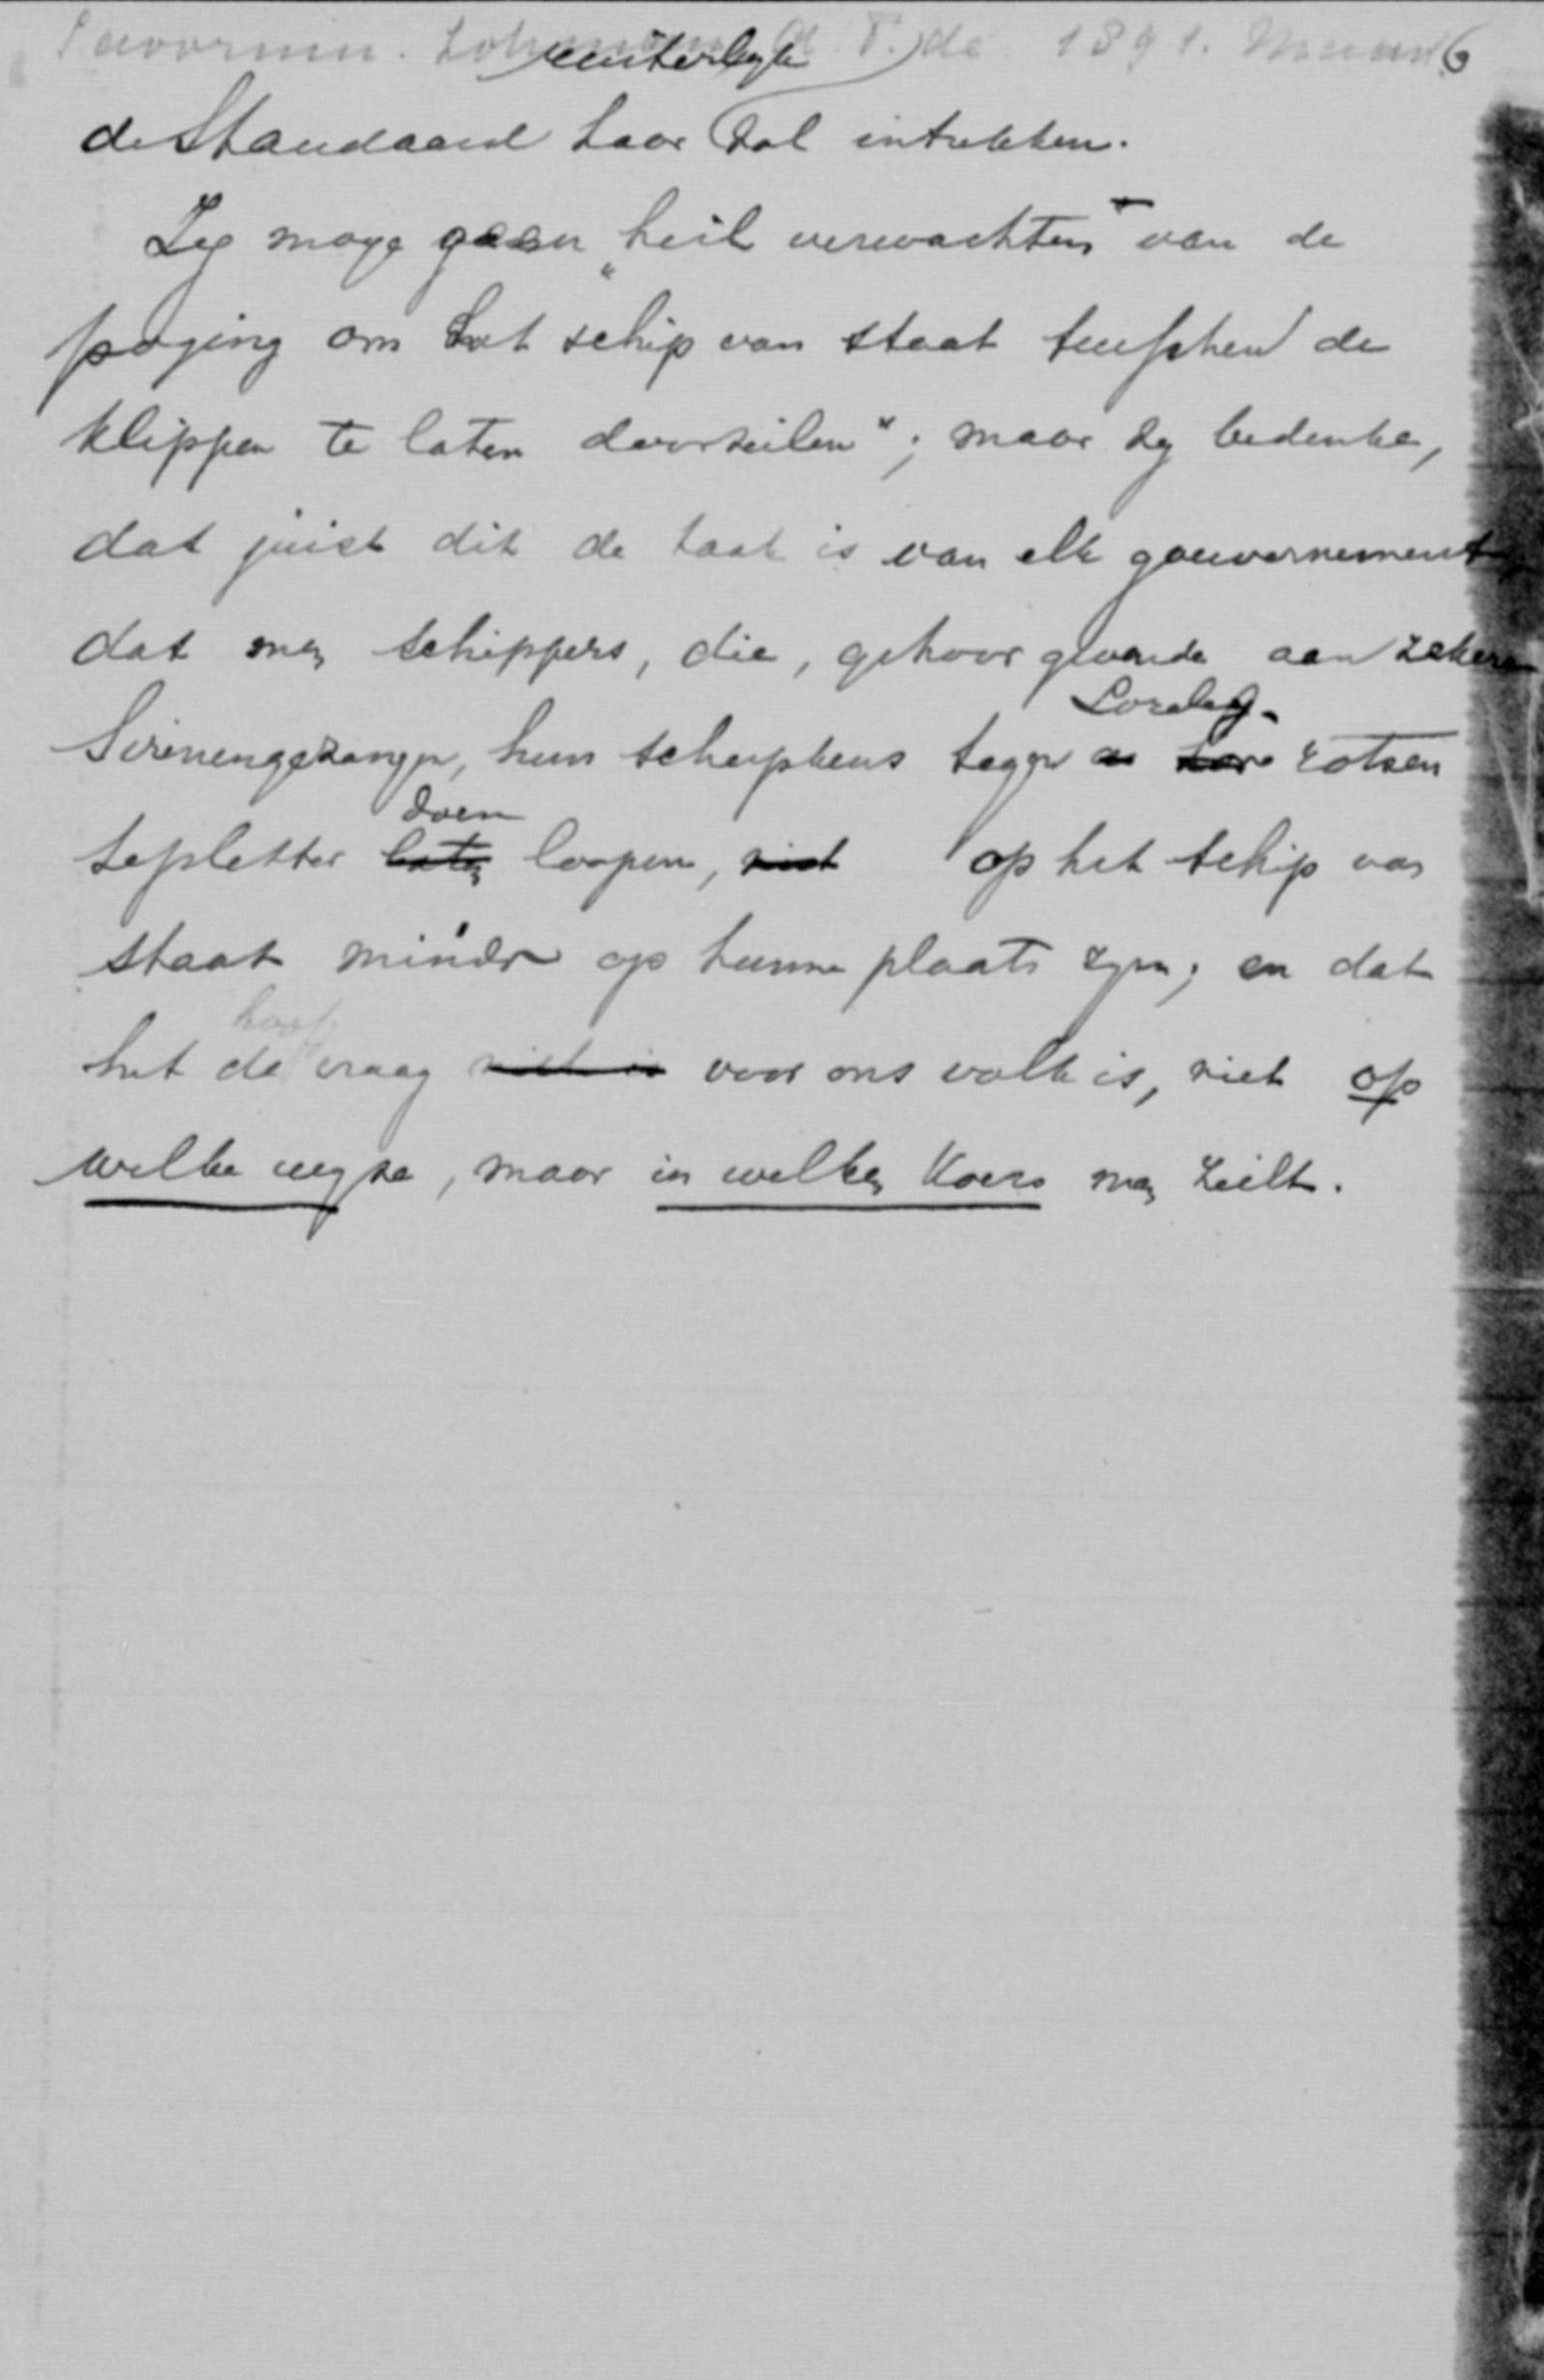 Savornin. Lohman A. F. de 1891. 6
de Standaard haar zal intrekken.
Zy moge geen „heil verwachten van de
poging om het schip van staat tusschen de
klippen te laten doorzeilen"; maar zy bedenke,
dat juist dit de taak is van elk gouvernement,
dat men schippers, die, gehoor gevende aan zekere
Loreley-
Sirenengezangen, hun scheepkens tegen de rotsen
doen
tepletter laten loopen, niet op het schip van
staat minder op hunne plaats zyn; en dat
het de vraag niet is voor ons volk is, niet op
welke wyze, maar in welken koers men zeilt.